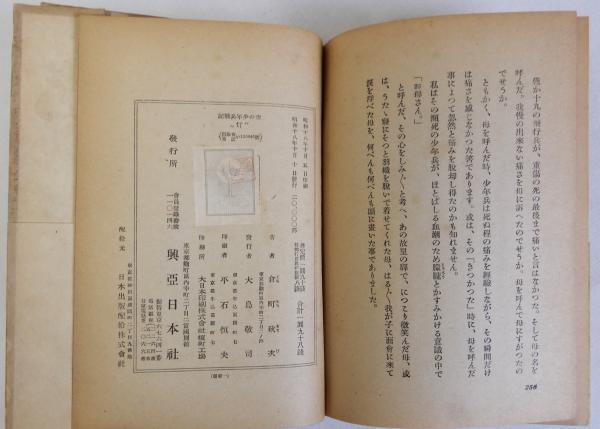 僅か十九の飛行兵が、重傷の死の最後まで痛いと言はなかつた。そして母の名を
呼んだ。我慢の出來ない痛さを母に訴へたのでせうか。母を呼んで母にすがつたの
でせうか。
ともかく、母を呼んだ時、少年兵は死ぬ程の痛みを
しながら、その瞬間だけ
は痛さを感じなかつた筈であります。或は、その「きつかつた」時に、母を呼んだ
事によつて忽然と痛みを脱却し得たのかも知れません。
私はその瀕死の少年兵が、ほとばしる血潮のため朦朧とかすみかける意識の中で
「お母さん。」
と呼んだ、その心をしみ〲と考へ、あの故里の驛で、につこり微笑んだ母、或
は、うたゝ寢にそつと羽織を脱いで着せてくれた母、はる〲我が子に面會に來て
涙を浮べた母を、何べんも何べんも頭に畫いた事でありました。
256
空の少年兵戰記
昭和十八年十月五日印刷
昭和十八年十月十日發行
二〇、〇〇〇部
合計一圓九十八錢
著者 倉町秋次
發行者 大島敬司
印刷者 平石恒夫
印刷所 大日本印刷株式會社榎町工場
發行所
會員登錄番號
一一〇一四六
東京都麴町區內幸町二丁目二富國館
興亞日本社
配給元
東京都神田區淡路町二丁目九番地
日本出版配給株式會社